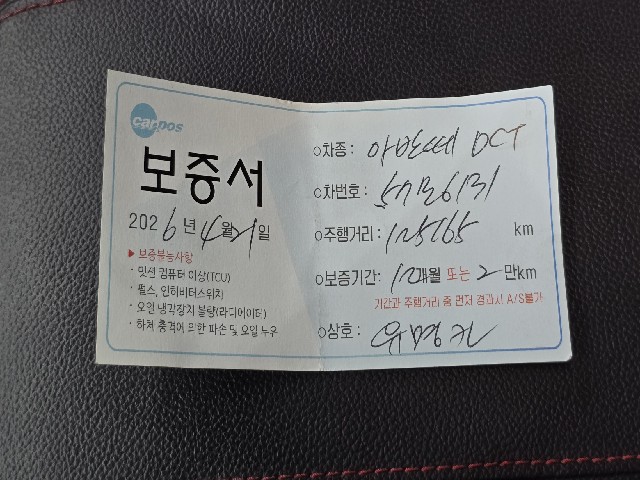 carpos
보증서
2026년 4월 21일
▶ 보증불능사항
· 밋션 컴퓨터 이상(TCU)
· 펄스, 인히비터스위치
· 오일 냉각장치 불량(라디에이터)
· 하체 충격에 의한 파손 및 오일 누구
○차종: 아반떼 DCT
○차번호:
○주행거리: 125165 km
○보증기간: 12개월 또는 2만km
기간과 주행거리 중 먼저 경과시 A/S불가
○상호: 유명카